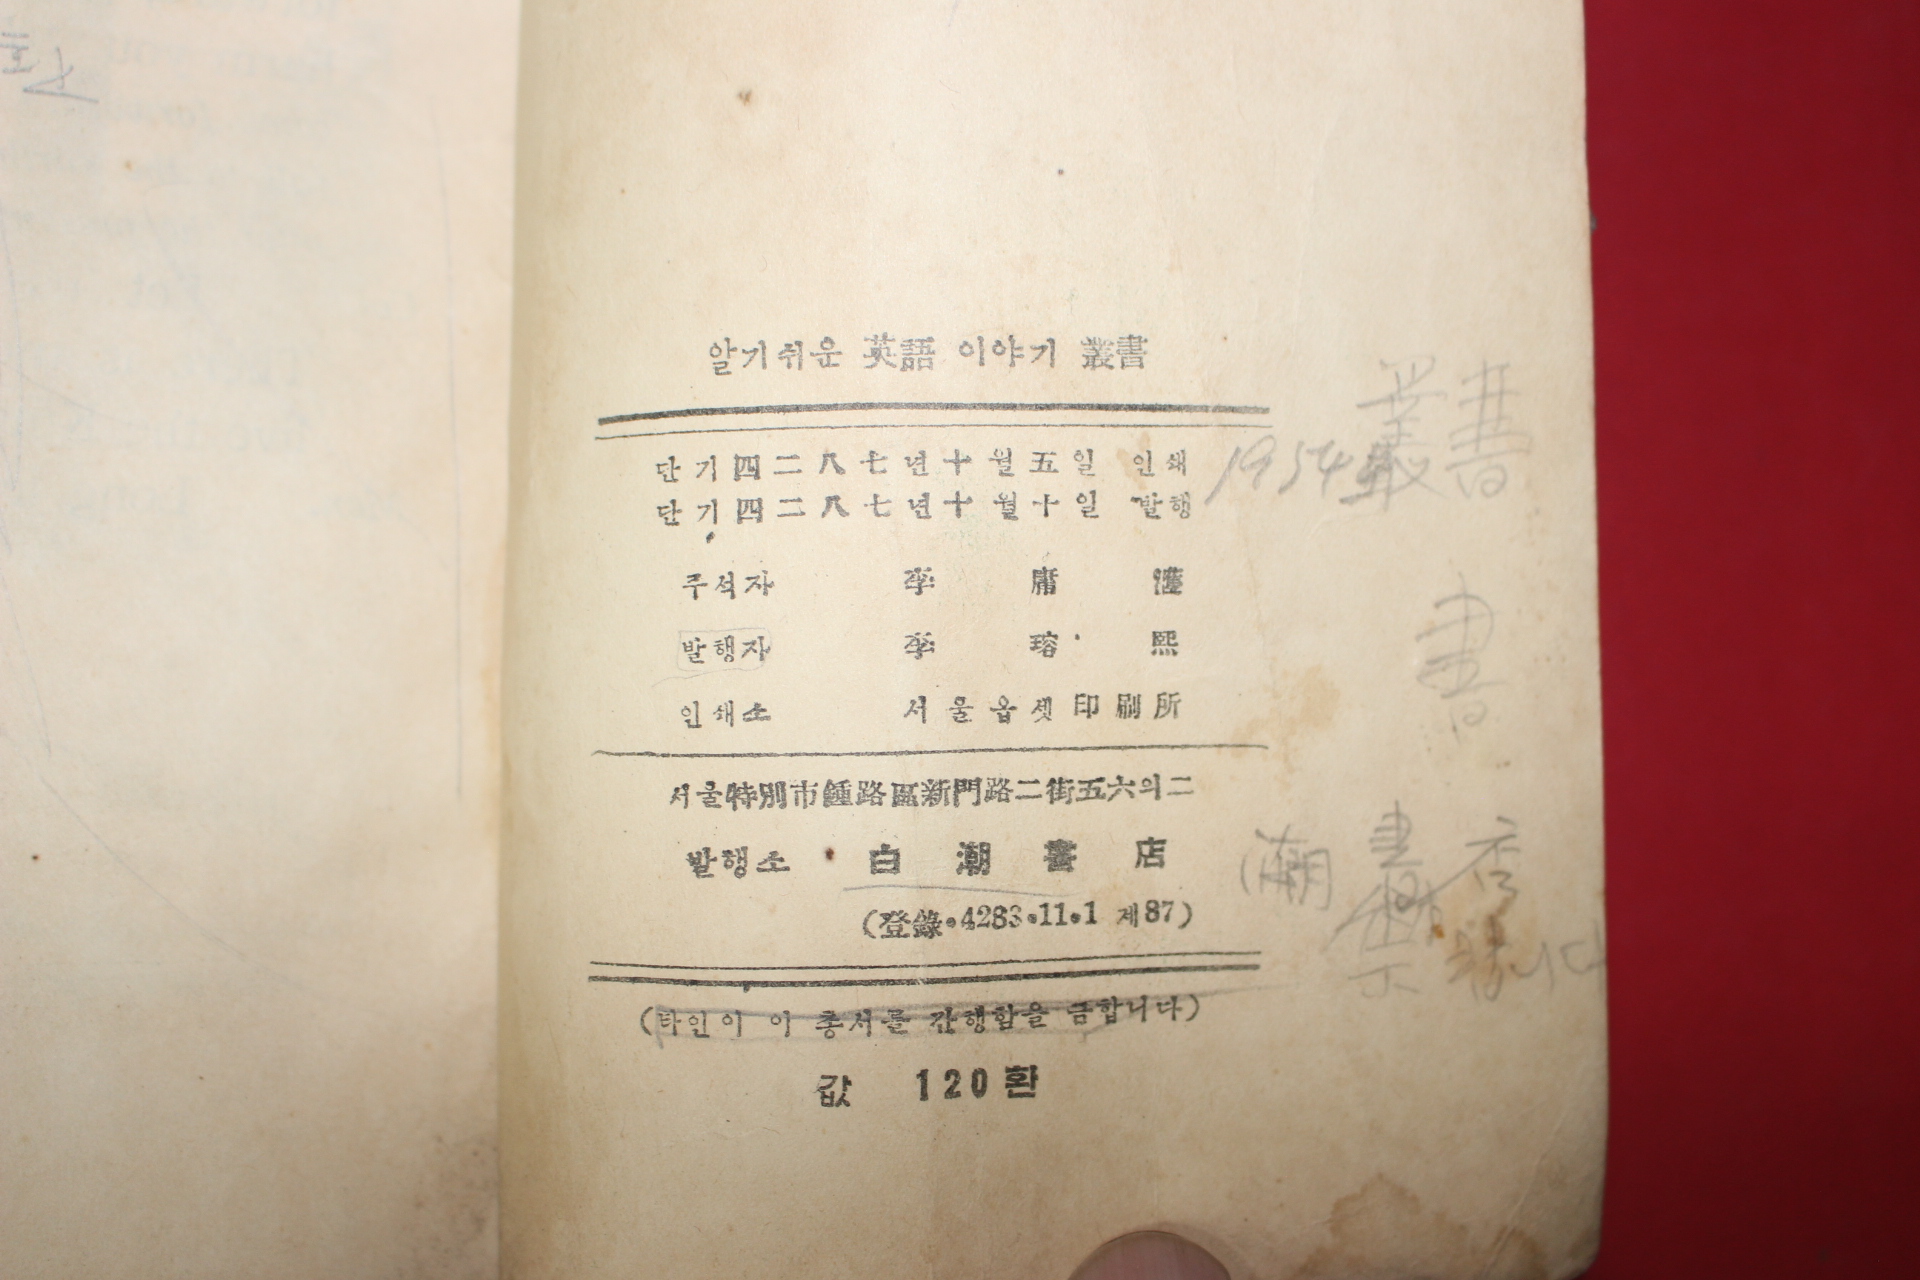 알기쉬운 英語 이야기 叢書
단기四二八七년十월五일 인쇄
단기四二八七년十월十일 발행
1954 叢書
주석자 李庸
발행자 李瑢熙
書
인쇄소 서울옵셋印刷所
서울特別市鍾路區新門路二街五六의二
발행소 白潮書店
潮 書
(登錄·4283·11·1 제87)
(타인이 이 총서를 간행함을 금합니다)
값 120환